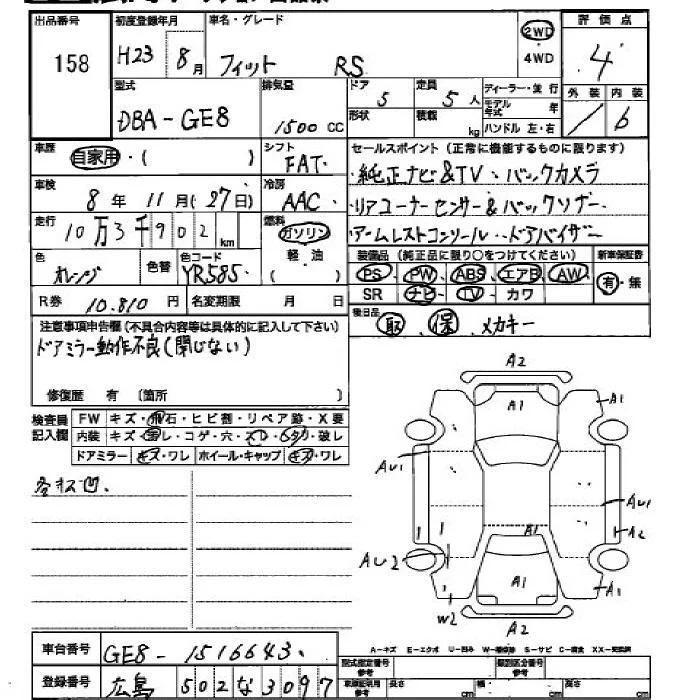 出品番号 初度登録年月 車名・グレード 2WD 評価点
158 H23 8月 フィット RS 4WD 4
型式 排気量 ドア 定員 ディーラー・並行 外装 内装
DBA-GE8 1500CC 5 5人 モデル年式 年 / 6
形状 積載 kg ハンドル 左・右
車歴 自家用・( ) シフト FAT セールスポイント(正常に機能するものに限ります)
・純正ナビ&TV・バックカメラ
車検 8年11月(27日) 冷房 AAC ・リアコーナーセンサー&バックソナー
走行 10万3千902km 燃料 ガソリン ・アームレストコンソール・ドアバイザー
軽油 装備品(純正品に限り○をつけてください) 新車保証書
色 オレンジ 色替 色コード YR585 PS・PW・ABS・エアB・AW 有・無
SR ナビ・TV・カワ
R券 10.810円 名変期限 月 日 後日品 取 保 メカキー
注意事項申告欄(不具合内容等は具体的に記入して下さい)
ドアミラー動作不良(閉じない)
修復歴 有 〔箇所 〕
検査員記入欄 FW キズ・飛石・ヒビ割・リペア跡・X要
内装 キズ・スレ・コゲ・穴・ ・ ・破レ
ドアミラー キズ・ワレ ホイール・キャップ キズ・ワレ
各キズ凹.
A2
A1 A1
AU1
AU1
A1 A2
AU2
A1 A1
W2
A2
車台番号 GE8-1516643.
A-キズ E-エクボ U-凹み W-補修跡 S-サビ C-腐食 XX-交換済
登録番号 広島 502な3097
型式指定番号 参考 類別区分番号 参考
車庫証明用 参考 長さ cm 幅 cm 高さ cm